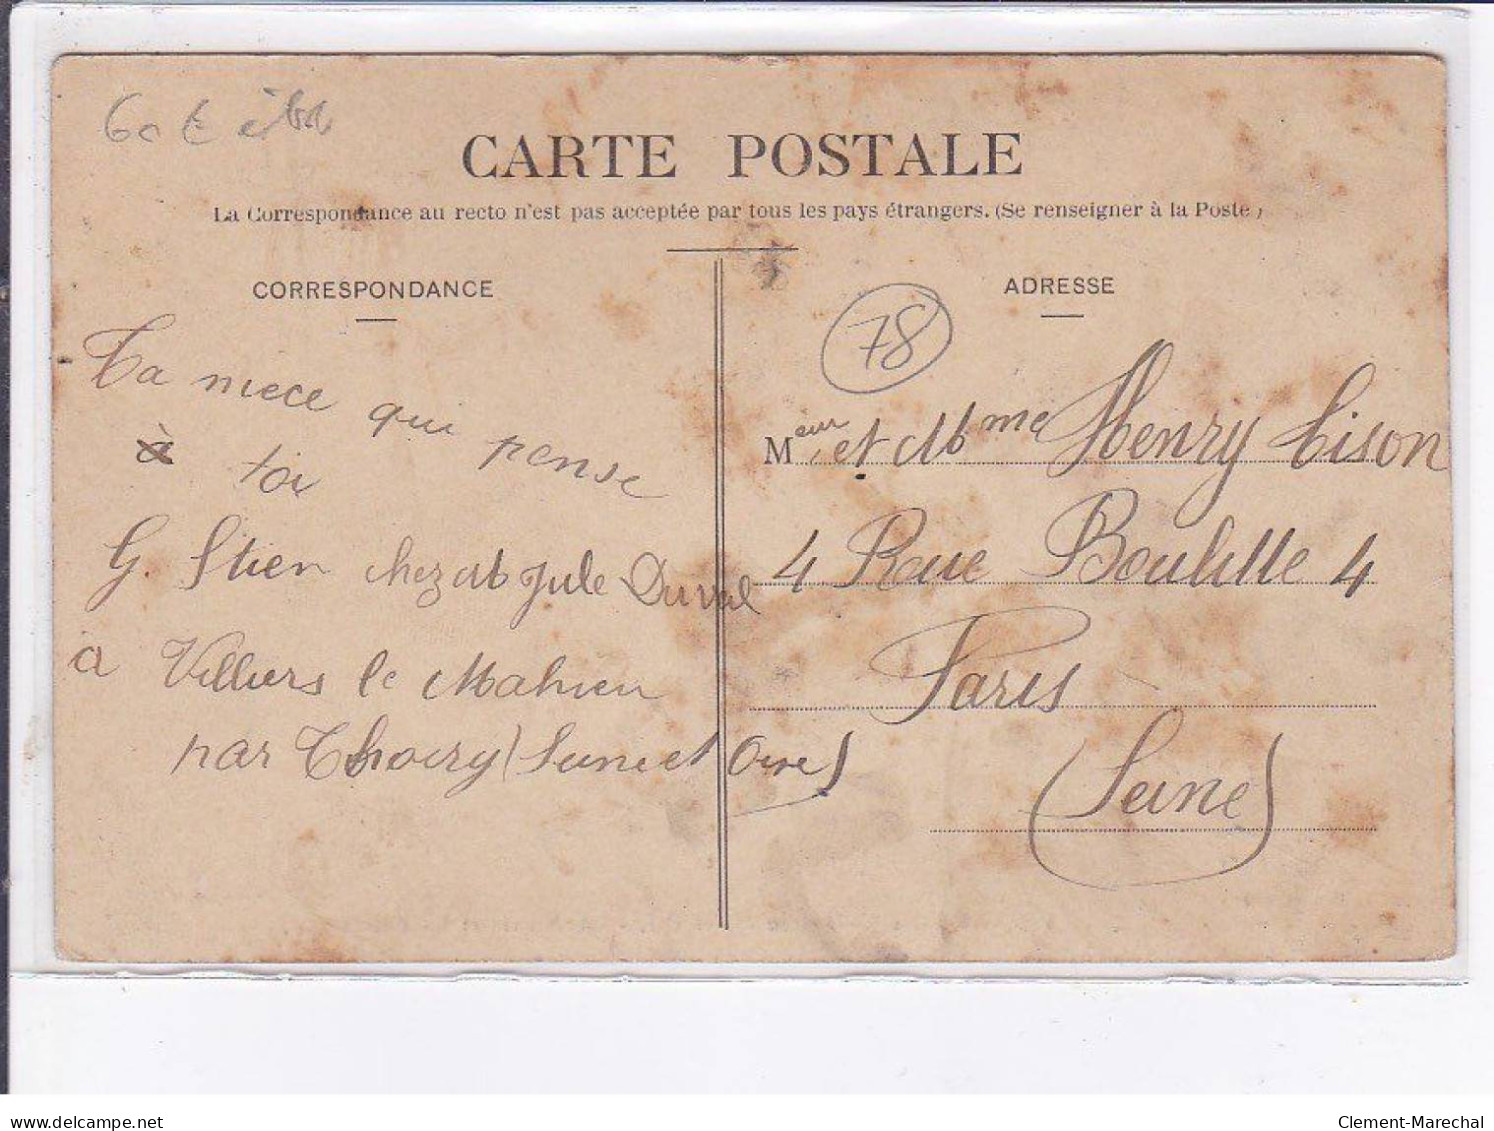 CARTE POSTALE
La Correspondance au recto n'est pas acceptée par tous les pays étrangers. (Se renseigner à la Poste)
CORRESPONDANCE
Ta niece qui pense
à toi
G. Stien chez M Jule Duval
a Villiers le Mahieu
par Thoiry (Seine et Oise)
ADRESSE
78
Meur, et Mme Henry Lison
4 Rue Boulitte 4
Paris
(Seine)
delcampe.net
Clement-Marechal